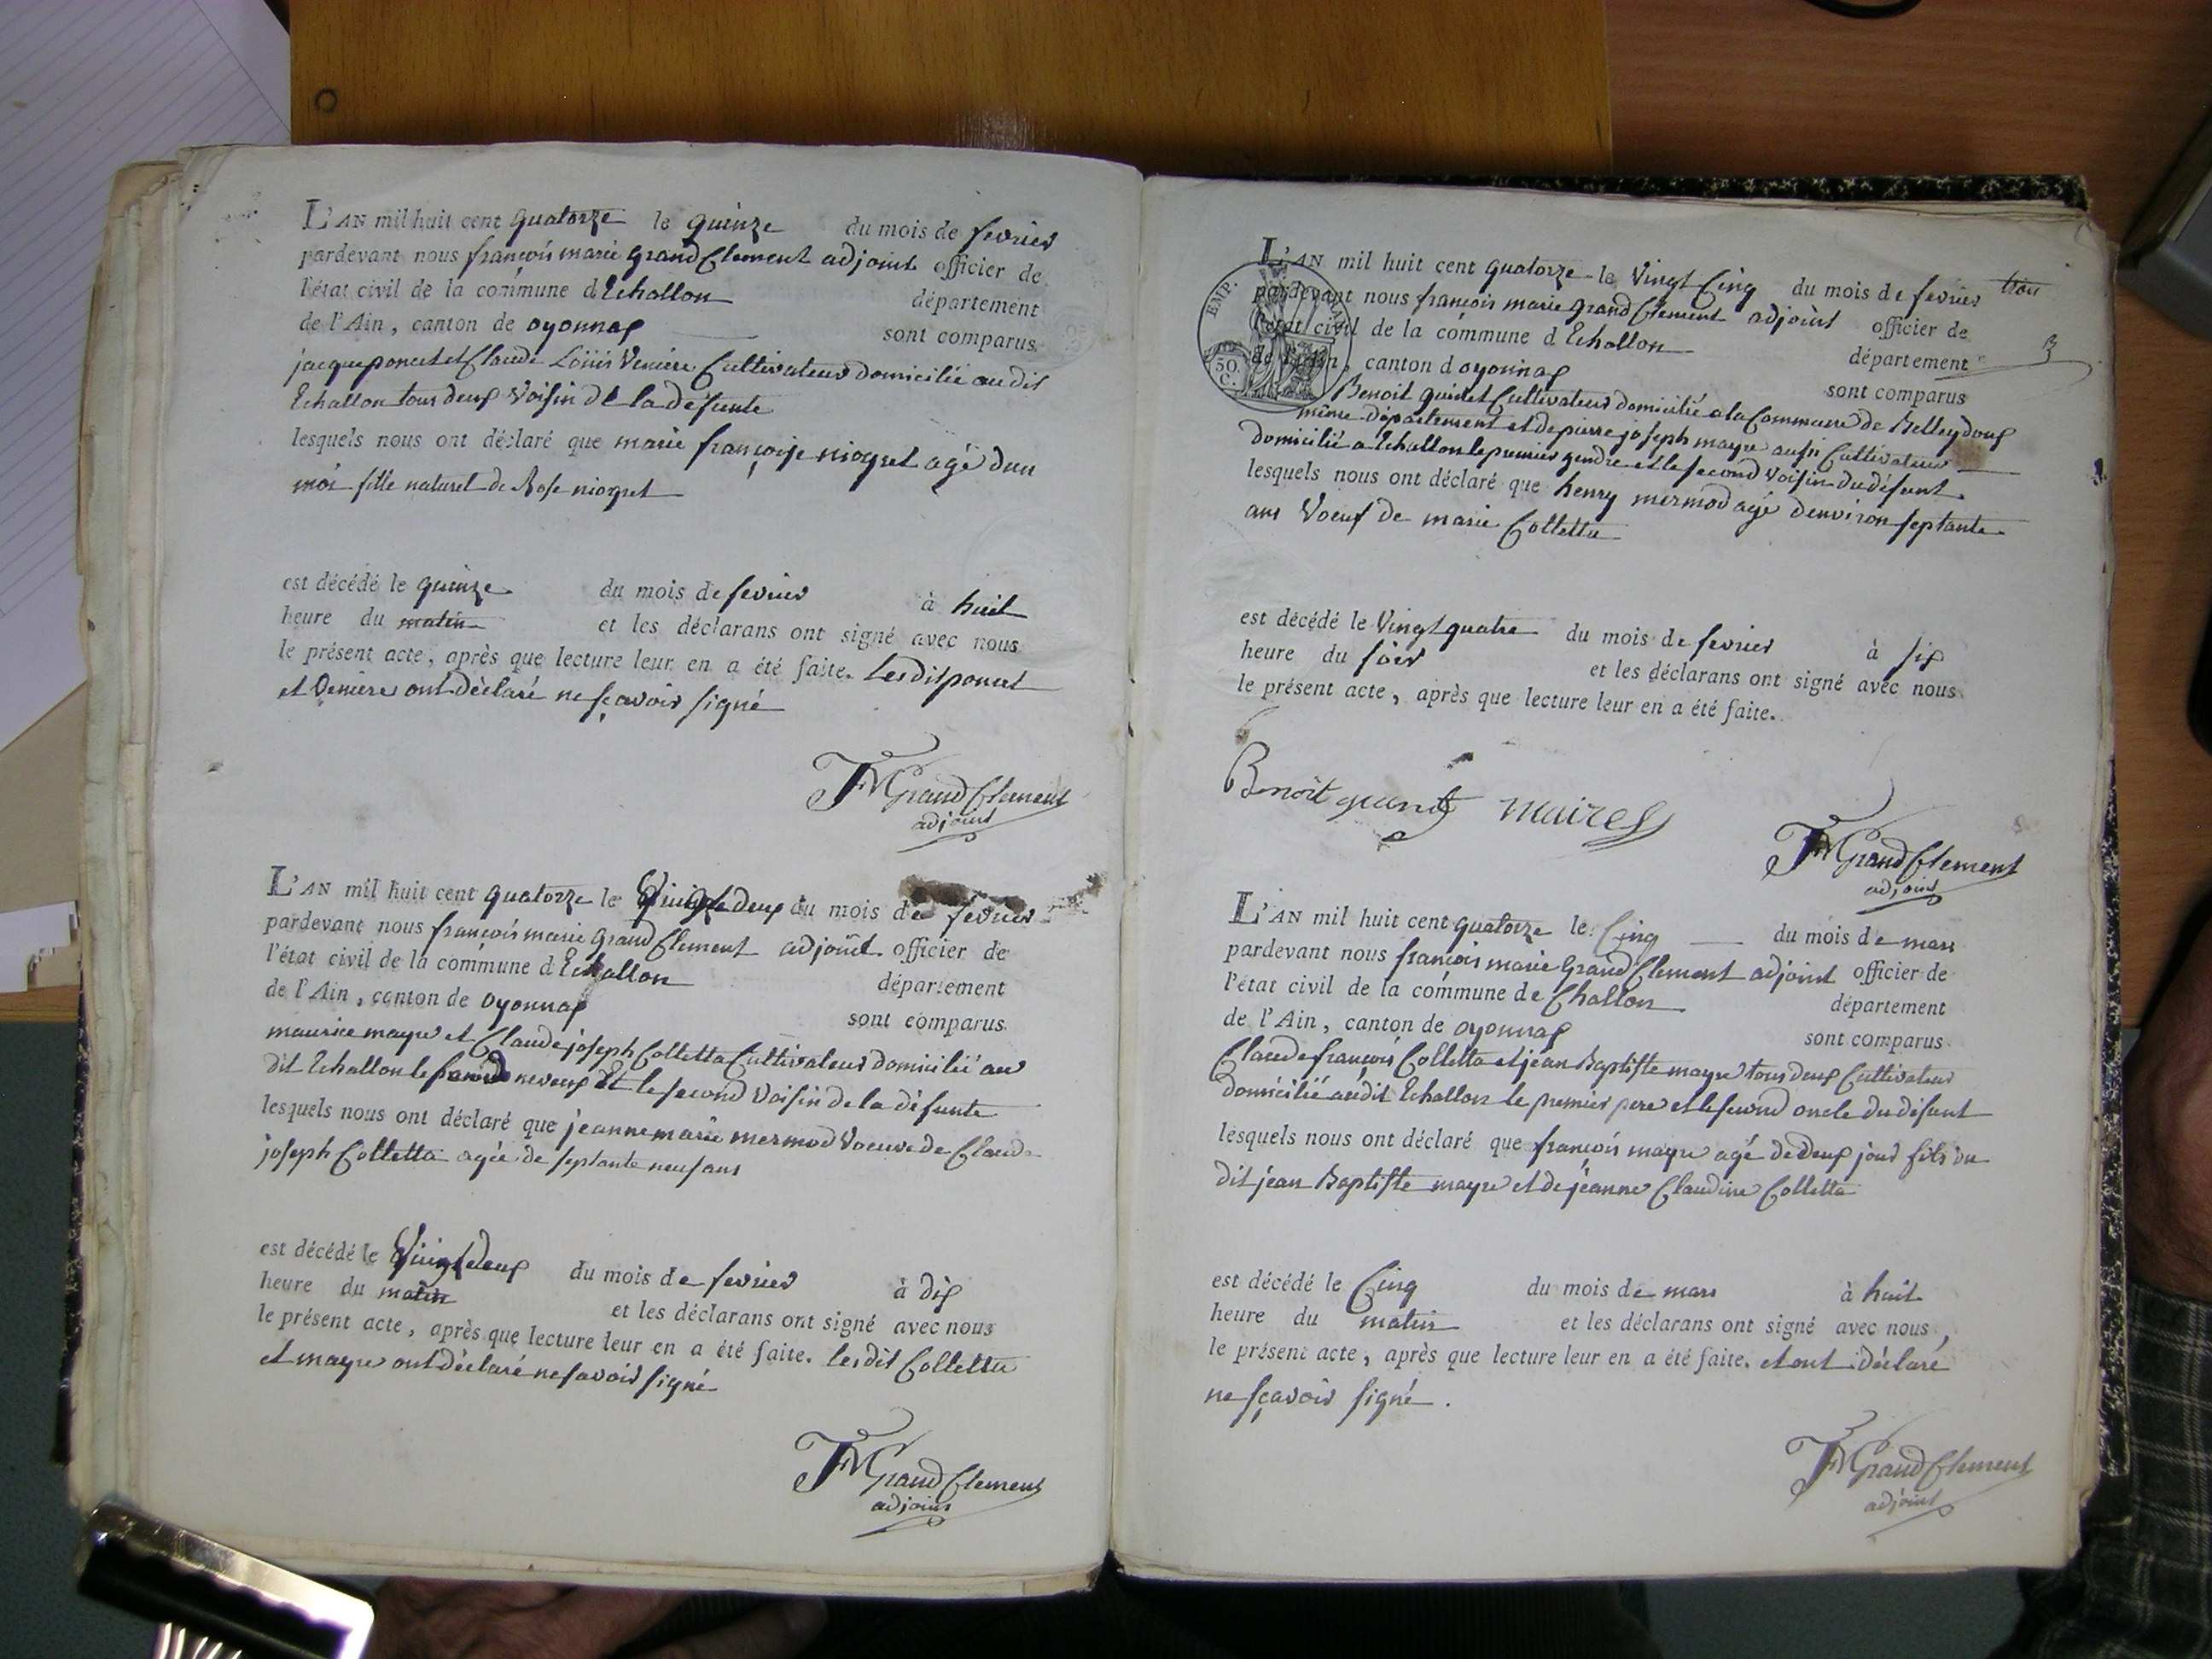 L'AN mil huit cent quatorze le quinze du mois de fevrier
pardevant nous françois marie grand Clement adjoint officier de
l'état civil de la commune d Echallon département
de l'Ain, canton de oyonnax sont comparus
jacque poncet et Claude Loüis Veniere Cultivateur domicilié au dit
Echallon tous deux Voisin de la défunte
lesquels nous ont déclaré que marie françoise niogret agé dun
moi fille naturel de Rose niogret
est décédé le quinze du mois de fevrier à huit
heure du matin et les déclarans ont signé avec nous
le présent acte, après que lecture leur en a été faite. Les dit poncet
et Veniere ont déclaré ne sçavoir signé
FM Grand Clement
adjoint
L'AN mil huit cent quatorze le Vingt deux du mois de fevrier
pardevant nous françois marie grand Clement adjoint officier de
l'état civil de la commune d Echallon département
de l'Ain, canton de oyonnax sont comparus
maurice mayre et Claude joseph Colletta Cultivateur domicilié au
dit Echallon le neveux Et le second Voisin de la défunte
lesquels nous ont déclaré que jeanne marie mermod Voeuve de Claude
joseph Colletta agée de septante neuf ans
est décédé le Vingt deux du mois de fevrier à dix
heure du matin et les déclarans ont signé avec nous
le présent acte, après que lecture leur en a été faite. les dit Colletta
et mayre ont déclaré ne savoir signé
FM Grand Clement
adjoint
L'AN mil huit cent quatorze le Vingt Cinq du mois de fevrier
trois
3
EMP.
50.
C.
pardevant nous françois marie grand Clement adjoint officier de
l'état civil de la commune d Echallon département
de l'Ain, canton d oyonnax sont comparus
Benoit Cultivateur domicilié a la Commune de Belleydoux
même département et de pierre joseph mayre aussi Cultivateur
domicilié a Echallon le premier gendre et le second Voisin du défunt
lesquels nous ont déclaré que henry mermod agé denviron septante
ans Voeuf de marie Colletta
est décédé le Vingt quatre du mois de fevrier à six
heure du soir et les déclarans ont signé avec nous
le présent acte, après que lecture leur en a été faite.
Benoit maire
FM Grand Clement
adjoint
L'AN mil huit cent quatorze le Cinq du mois de mars
pardevant nous françois marie Grand Clement adjoint officier de
l'état civil de la commune de Challon département
de l'Ain, canton de oyonnax sont comparus
Claude françois Colletta et jean Baptiste mayre tous deux Cultivateur
domicilié audit Echallon le premier pere et le second oncle du défunt
lesquels nous ont déclaré que françois mayre agé de deux jour fils du
dit jean Baptiste mayre et de jeanne Claudine Colletta
est décédé le Cinq du mois de mars à huit
heure du matin et les déclarans ont signé avec nous,
le présent acte, après que lecture leur en a été faite. et ont déclaré
ne sçavoir signé.
FM Grand Clement
adjoint